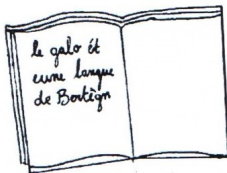 le galo ét
eune langue
de Bertègn